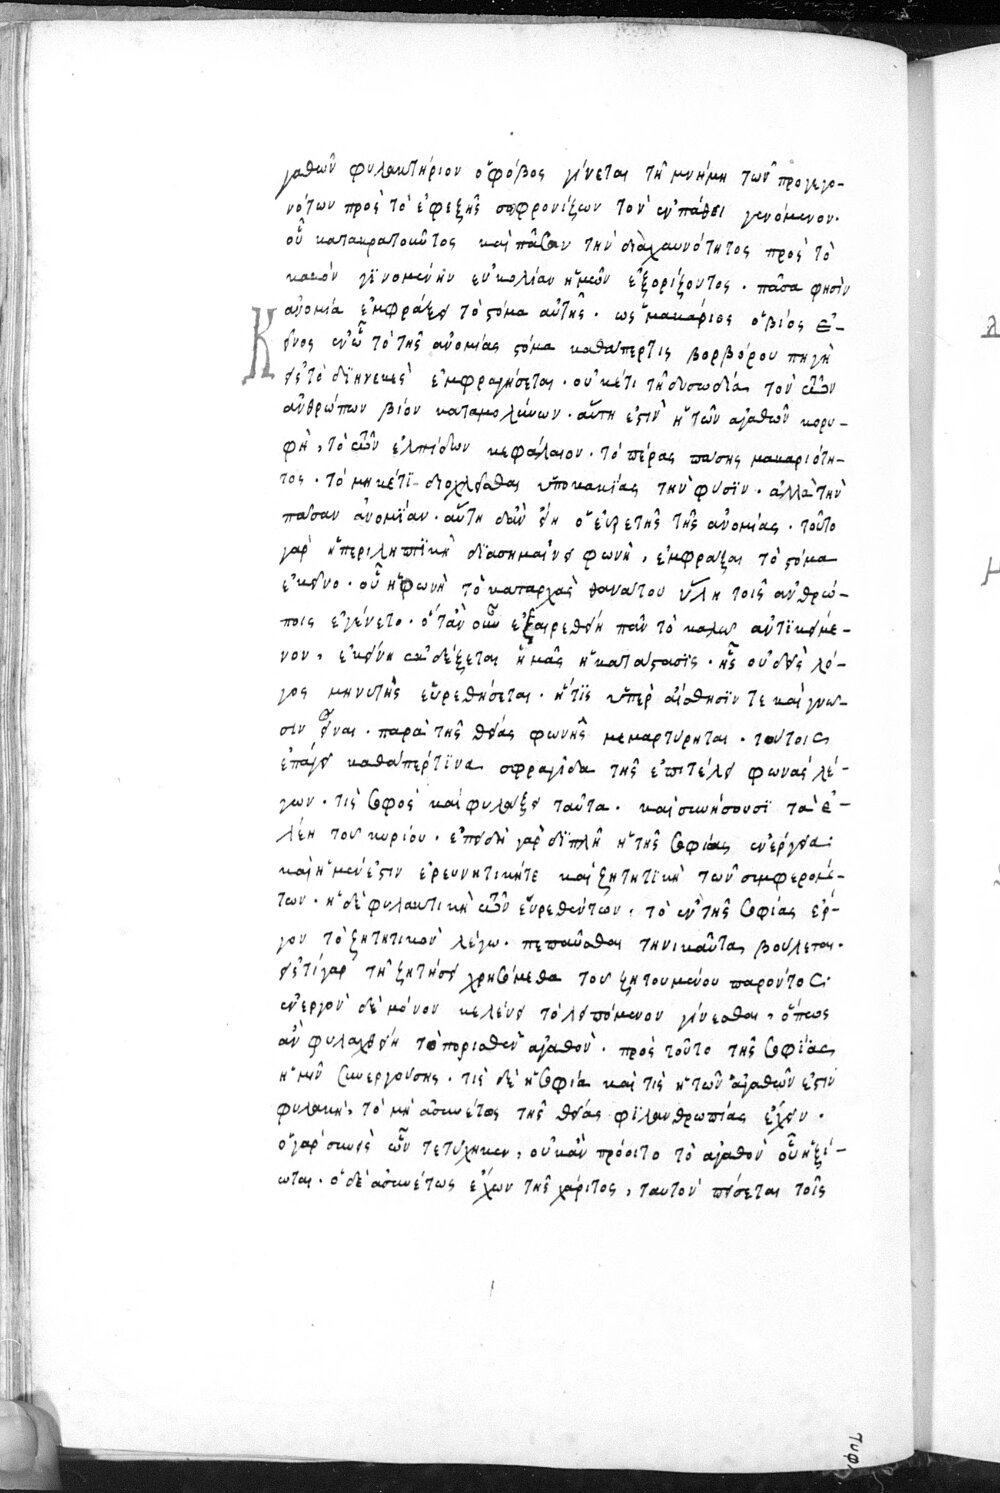 γαθῶν φυλακτήριον ὁ φόβος γίνεται τῇ μνήμῃ τῶν προγεγο-
νότων πρὸς τὸ ἐφεξῆς σωφρονίζων τὸν ἐν πάθει γενόμενον·
οὗ κατακρατοῦντος καὶ πᾶσαν τὴν διὰ χαυνότητος πρὸς τὸ
κακὸν γινομένην εὐκολίαν ἡμῶν ἐξορίζοντος. πᾶσα φησὶν
ἀνομία ἐμφράξει τὸ στόμα αὐτῆς. ὡς μακάριος ὁ βίος ἐ-
κεῖνος ἐν ᾧ τὸ τῆς ἀνομίας στόμα καθάπερ τις βορβόρου πηγὴ
εἰς τὸ διηνεκὲς ἐμφραγήσεται. οὐκέτι τῇ δυσωδίᾳ τὸν τῶν
ἀνθρώπων βίον καταμολύνων. αὕτη ἐστὶν ἡ τῶν ἀγαθῶν κορυ-
φὴ, τὸ τῶν ἐλπίδων κεφάλαιον. τὸ πέρας πάσης μακαριότη-
τος. τὸ μηκέτι διοχλεῖσθαι ὑπὸ κακίας τὴν φύσιν. ἀλλὰ τὴν
πᾶσαν ἀνομίαν. αὕτη δ' ἂν εἴη ὁ εὑρετὴς τῆς ἀνομίας. τοῦτο
γὰρ ἡ περιληπτικὴ διασημαίνει φωνὴ, ἐμφράξαι τὸ στόμα
ἐκεῖνο. οὗ ἡ φωνὴ τὸ καταρχὰς θανάτου ὕλη τοῖς ἀνθρώ-
ποις ἐγένετο. ὅταν οὖν ἐξαιρεθείη πᾶν τὸ καλῷ ἀντικείμε-
νον, ἐκείνη διαδέξεται ἡμᾶς ἡ κατάστασις. ἧς οὐδεὶς λό-
γος μηνυτὴς εὑρεθήσεται. ἥτις ὑπὲρ αἴσθησίν τε καὶ γνῶ-
σιν εἶναι. παρὰ τῆς θείας φωνῆς μεμαρτύρηται. τούτοις
ἐπάγει καθάπερ τινα σφραγῖδα τῆς ἐπὶ τέλει φωνὰς λέ-
γων. τίς σοφὸς καὶ φυλάξει ταῦτα. καὶ συνήσουσι τὰ ἐ-
λέη τοῦ κυρίου. ἐπειδὴ γὰρ διπλῆ ἡ τῆς σοφίας ἐνέργεια·
καὶ ἡ μέν ἐστιν ἐρευνητικήτε καὶ ζητητικὴ τῶν συμφερόν-
των. ἡ δὲ φυλακτικὴ τῶν εὑρεθέντων. τὸ ἓν τῆς σοφίας ἔρ-
γον τὸ ζητητικὸν λέγω. πεπαῦσθαι τηνικαῦτα βούλεται.
εἰς τί γὰρ τῇ ζητήσει χρησόμεθα τοῦ ζητουμένου παρόντος·
ἐνεργὸν δὲ μόνον κελεύει τὸ λειπόμενον γίνεσθαι, ὅπως
ἂν φυλαχθείη τὸ πορισθὲν ἀγαθὸν. πρὸς τοῦτο τῆς σοφίας
ἡμῖν συνεργούσης. τίς δὲ ἡ σοφία καὶ τίς ἡ τῶν ἀγαθῶν ἐστιν
φυλακὴ, τὸ μὴ ἀσυνέτως τῆς θείας φιλανθρωπίας ἔχειν.
ὁ γὰρ συνεὶς ὧν τετύχηκεν, οὐκ ἂν πρόοιτο τὸ ἀγαθὸν οὗ ἠξί-
ωται. ὁ δὲ ἀσυνέτως ἔχων τῆς χάριτος, ταυτὸν πείσεται τοῖς